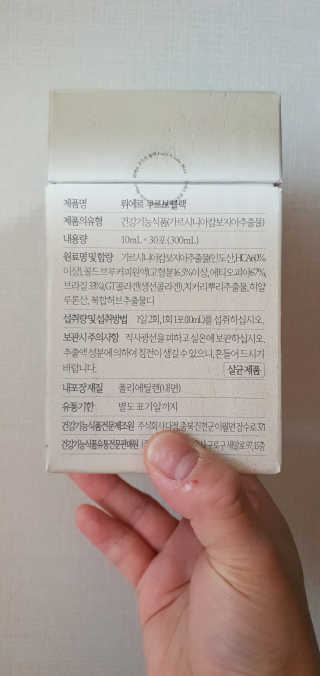 제품명 뤼에르 쿠르보 블랙
제품의유형 건강기능식품(가르시니아캄보지아추출물)
내용량 10mL × 30포 (300mL)
원료명 및 함량 가르시니아캄보지아추출물(인도산, HCA60%
이상), 콜드브루커피원액(고형분16.3%이상, 에티오피아67%,
브라질 33%), GT콜라겐(생선콜라겐), 치커리뿌리추출물, 히알
루론산, 복합허브추출물디
섭취량 및 섭취방법 1일 2회, 1회 1포(10mL)를 섭취하십시오.
보관시 주의사항 직사광선을 피하고 실온에 보관하십시오.
추출액 성분에 의하여 침전이 생길 수 있으니, 흔들어 드시기
바랍니다. 살균제품
내포장재질 폴리에틸렌(내면)
유통기한 별도 표기일까지
건강기능식품전문제조원 주식회사 충북 진천군 이월면
건강기능식품유통전문판매원 구로구